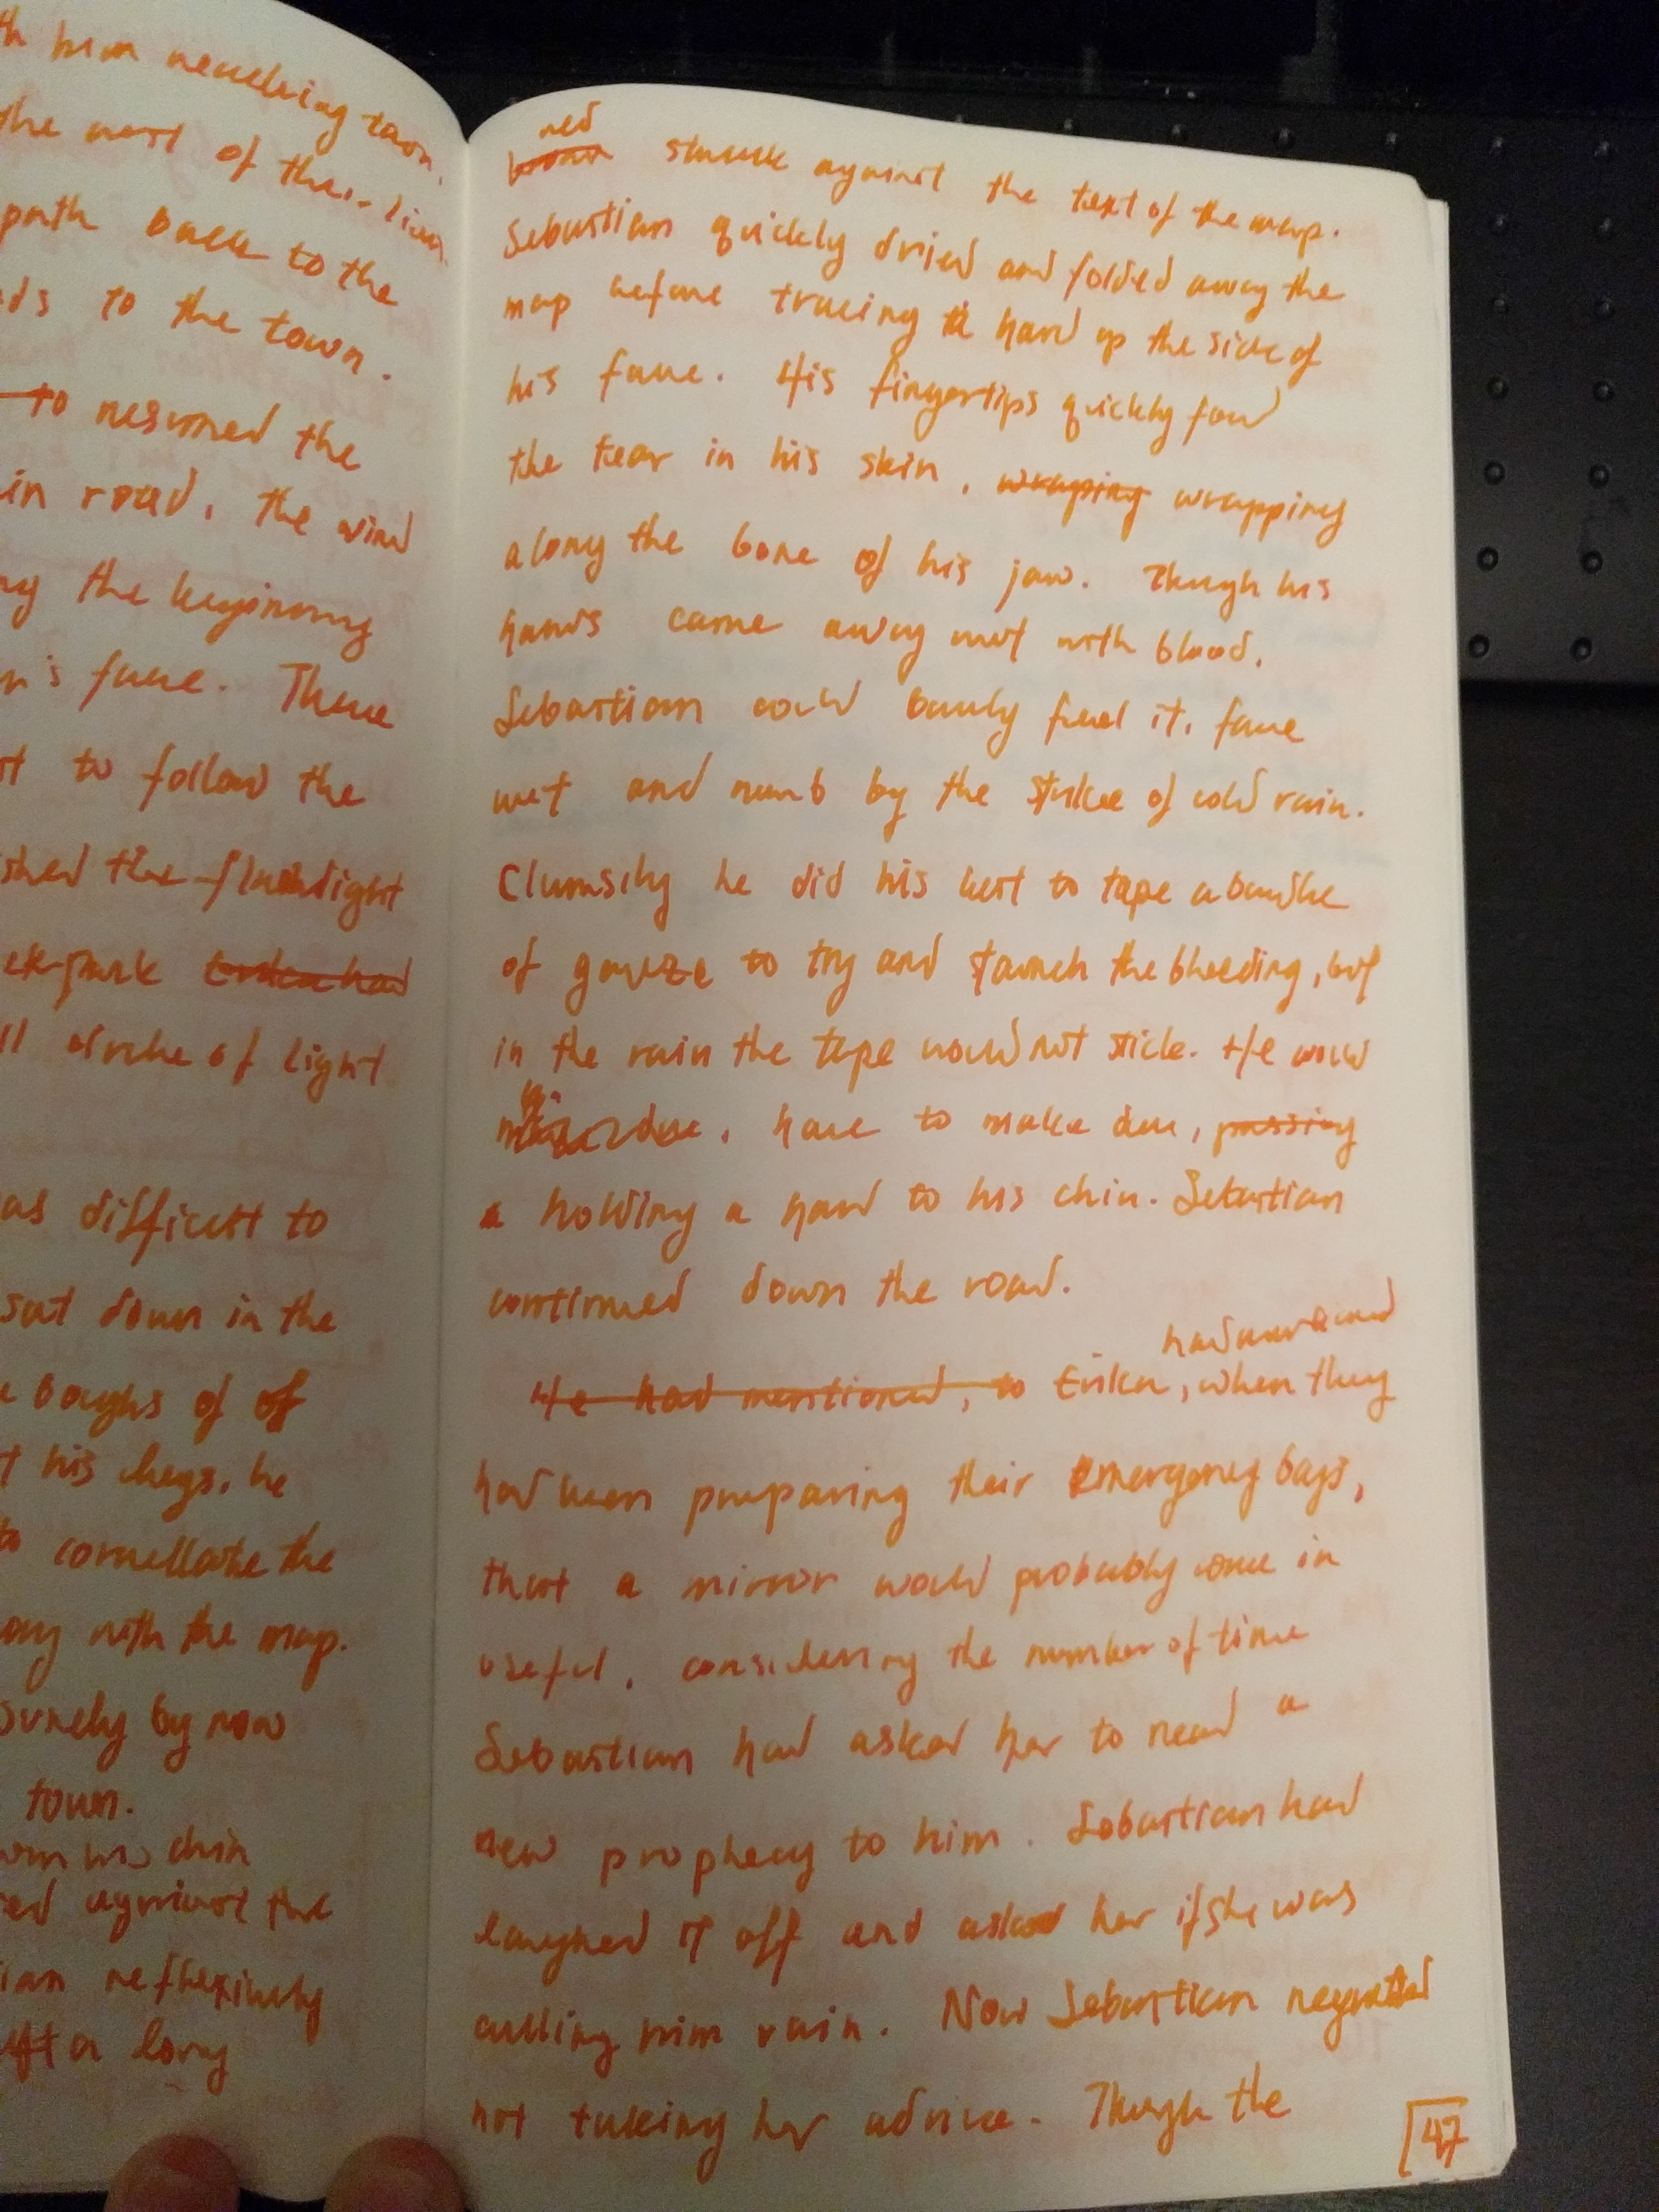 th him reaching town.
the west of the
path back to the
ds to the town.
to resumed the
in road, the wind
ng the beginning
n's face. There
t to follow the
shed the flashlight
ck-pack
ll circle of light
as difficult to
sat down in the
boughs of of
t his legs, he
to correllate the
ong with the map.
surely by now
town.
his chin
ed against the
ian reflexively
ft a long
red
streak against the text of the map.
Sebastian quickly dried and folded away the
map before tracing a hand up the side of
his face. His fingertips quickly found
the tear in his skin, wraping wrapping
along the bone of his jaw. Though his
hands came away wet with blood,
Sebastian could barely feel it, face
wet and numb by the strike of cold rain.
Clumsily he did his best to tape a
of gauze to try and staunch the bleeding, but
in the rain the tape would not stick. He would
have to make due, passing
a holding a hand to his chin. Sebastian
continued down the road.
had
He had mentioned, to Erika, when they
had been preparing their emergency bags,
that a mirror would probably come in
useful, considering the number of time
Sebastian had asked her to read a
new prophecy to him. Sebastian had
laughed it off and asked her if she was
calling him vain. Now Sebastian regretted
not taking her advice. Though the
47